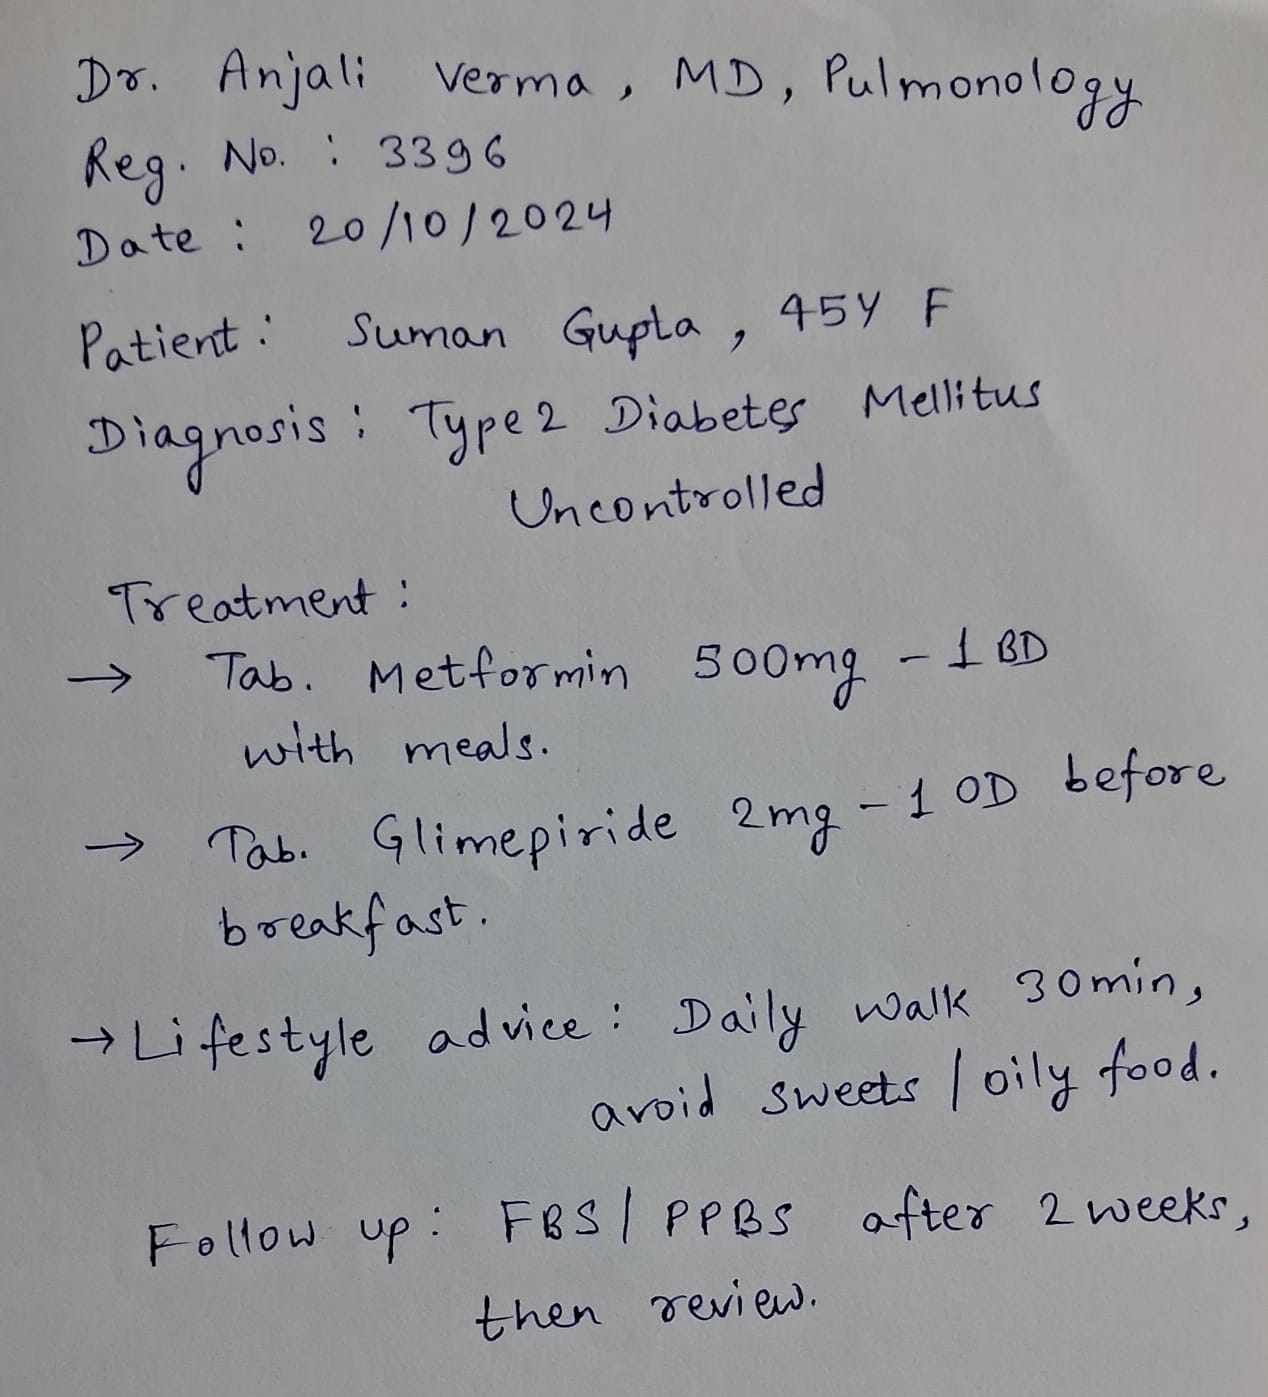 Dr. Anjali Verma, MD, Pulmonology
Reg. No. : 3396
Date : 20/10/2024
Patient : Suman Gupta, 45Y F
Diagnosis : Type 2 Diabetes Mellitus
Uncontrolled
Treatment :
→ Tab. Metformin 500mg - 1 BD
with meals.
→ Tab. Glimepiride 2mg - 1 OD before
breakfast.
→ Lifestyle advice : Daily walk 30min,
avoid sweets / oily food.
Follow up : FBS / PPBS after 2 weeks,
then review.